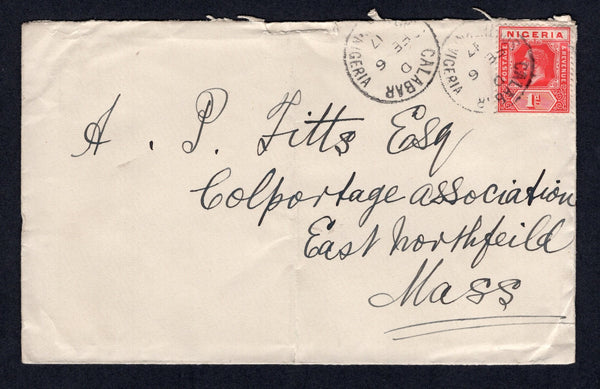 CALABAR
D
6
FE
17
NIGERIA
CALABAR
6
FE
17
NIGERIA
NIGERIA
POSTAGE
& REVENUE
1d
A. P. Fitts Esq
Colportage association
East Northfeild
Mass